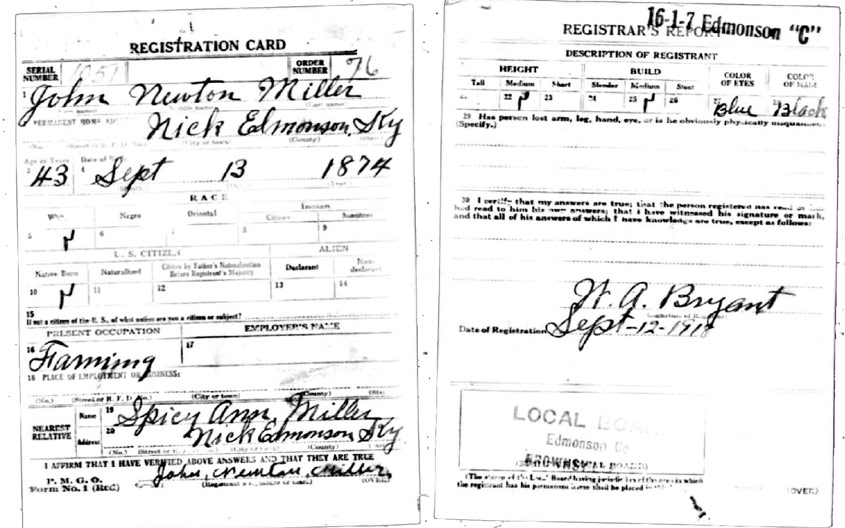 REGISTRATION CARD
SERIAL NUMBER
ORDER NUMBER 76
1 John Newton Miller
PERMANENT HOME
Nick Edmonson Ky
(No.) (City or town) (County)
Age in Years Date of
3 43 4 Sept 13 1874
RACE
White Negro Oriental Indian
Citizen
5 6 7 8 9
U. S. CITIZEN ALIEN
Native Born Naturalized Citizen by Father's Naturalization Before Registrant's Majority Declarant Non-declarant
10 11 12 13 14
15
If not a citizen of the U. S., of what nation are you a citizen or subject?
PRESENT OCCUPATION EMPLOYER'S NAME
16 Farming 17
18 PLACE OF EMPLOYMENT OR BUSINESS:
(No.) (Street or R. F. D. No.) (City or town) (County)
NEAREST RELATIVE
Name 19 Spicy Ann Miller
Address 20 Nick Edmonson Ky
(No.) (County)
I AFFIRM THAT I HAVE VERIFIED ABOVE ANSWERS AND THAT THEY ARE TRUE
P. M. G. O.
Form No. 1 (Red)
John, Newton, Miller
(OVER)
16-1-7 Edmonson "C"
REGISTRAR'S REPORT
DESCRIPTION OF REGISTRANT
HEIGHT BUILD COLOR OF EYES COLOR OF HAIR
Tall Medium Short Slender Medium Stout
21 22 23 24 25 26 Blue Black
29 Has person lost arm, leg, hand, eye, or is he obviously physically disqualified?
(Specify.)
30 I certify that my answers are true; that the person registered has read or
had read to him his own answers; that I have witnessed his signature or mark,
and that all of his answers of which I have knowledge are true, except as follows:
W. A. Bryant
Date of Registration Sept-12-1918
LOCAL BOARD
Edmonson Co
BROWNSVILLE
BOARD)
(The stamp of the Local Board having jurisdiction of the area in which
the registrant has his permanent home shall be placed in
(OVER)